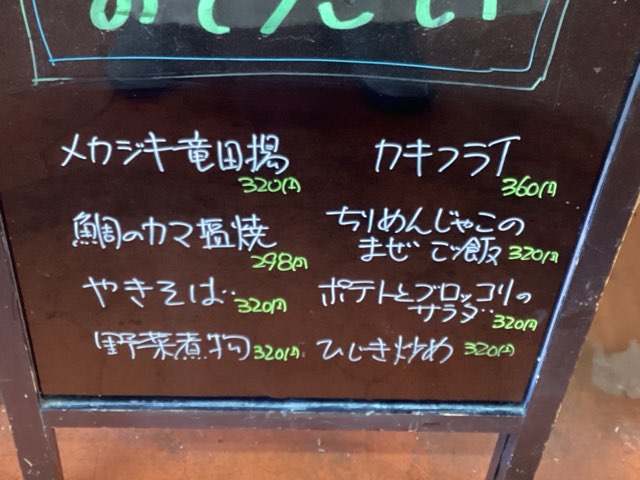 メカジキ竜田揚
320円
カキフライ
360円
鯛のカマ塩焼
298円
ちりめんじゃこの
まぜご飯 320円
やきそば
320円
ポテトとブロッコリの
サラダ
320円
野菜煮物 320円
ひじき炒め 320円